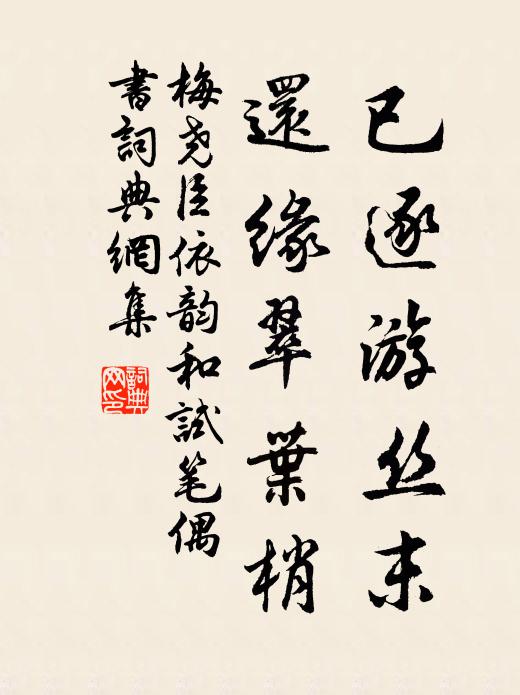 已逐游丝末
還緣翠葉梢
梅尧臣依韵和試笔偶
書詞典網集
詞典網印